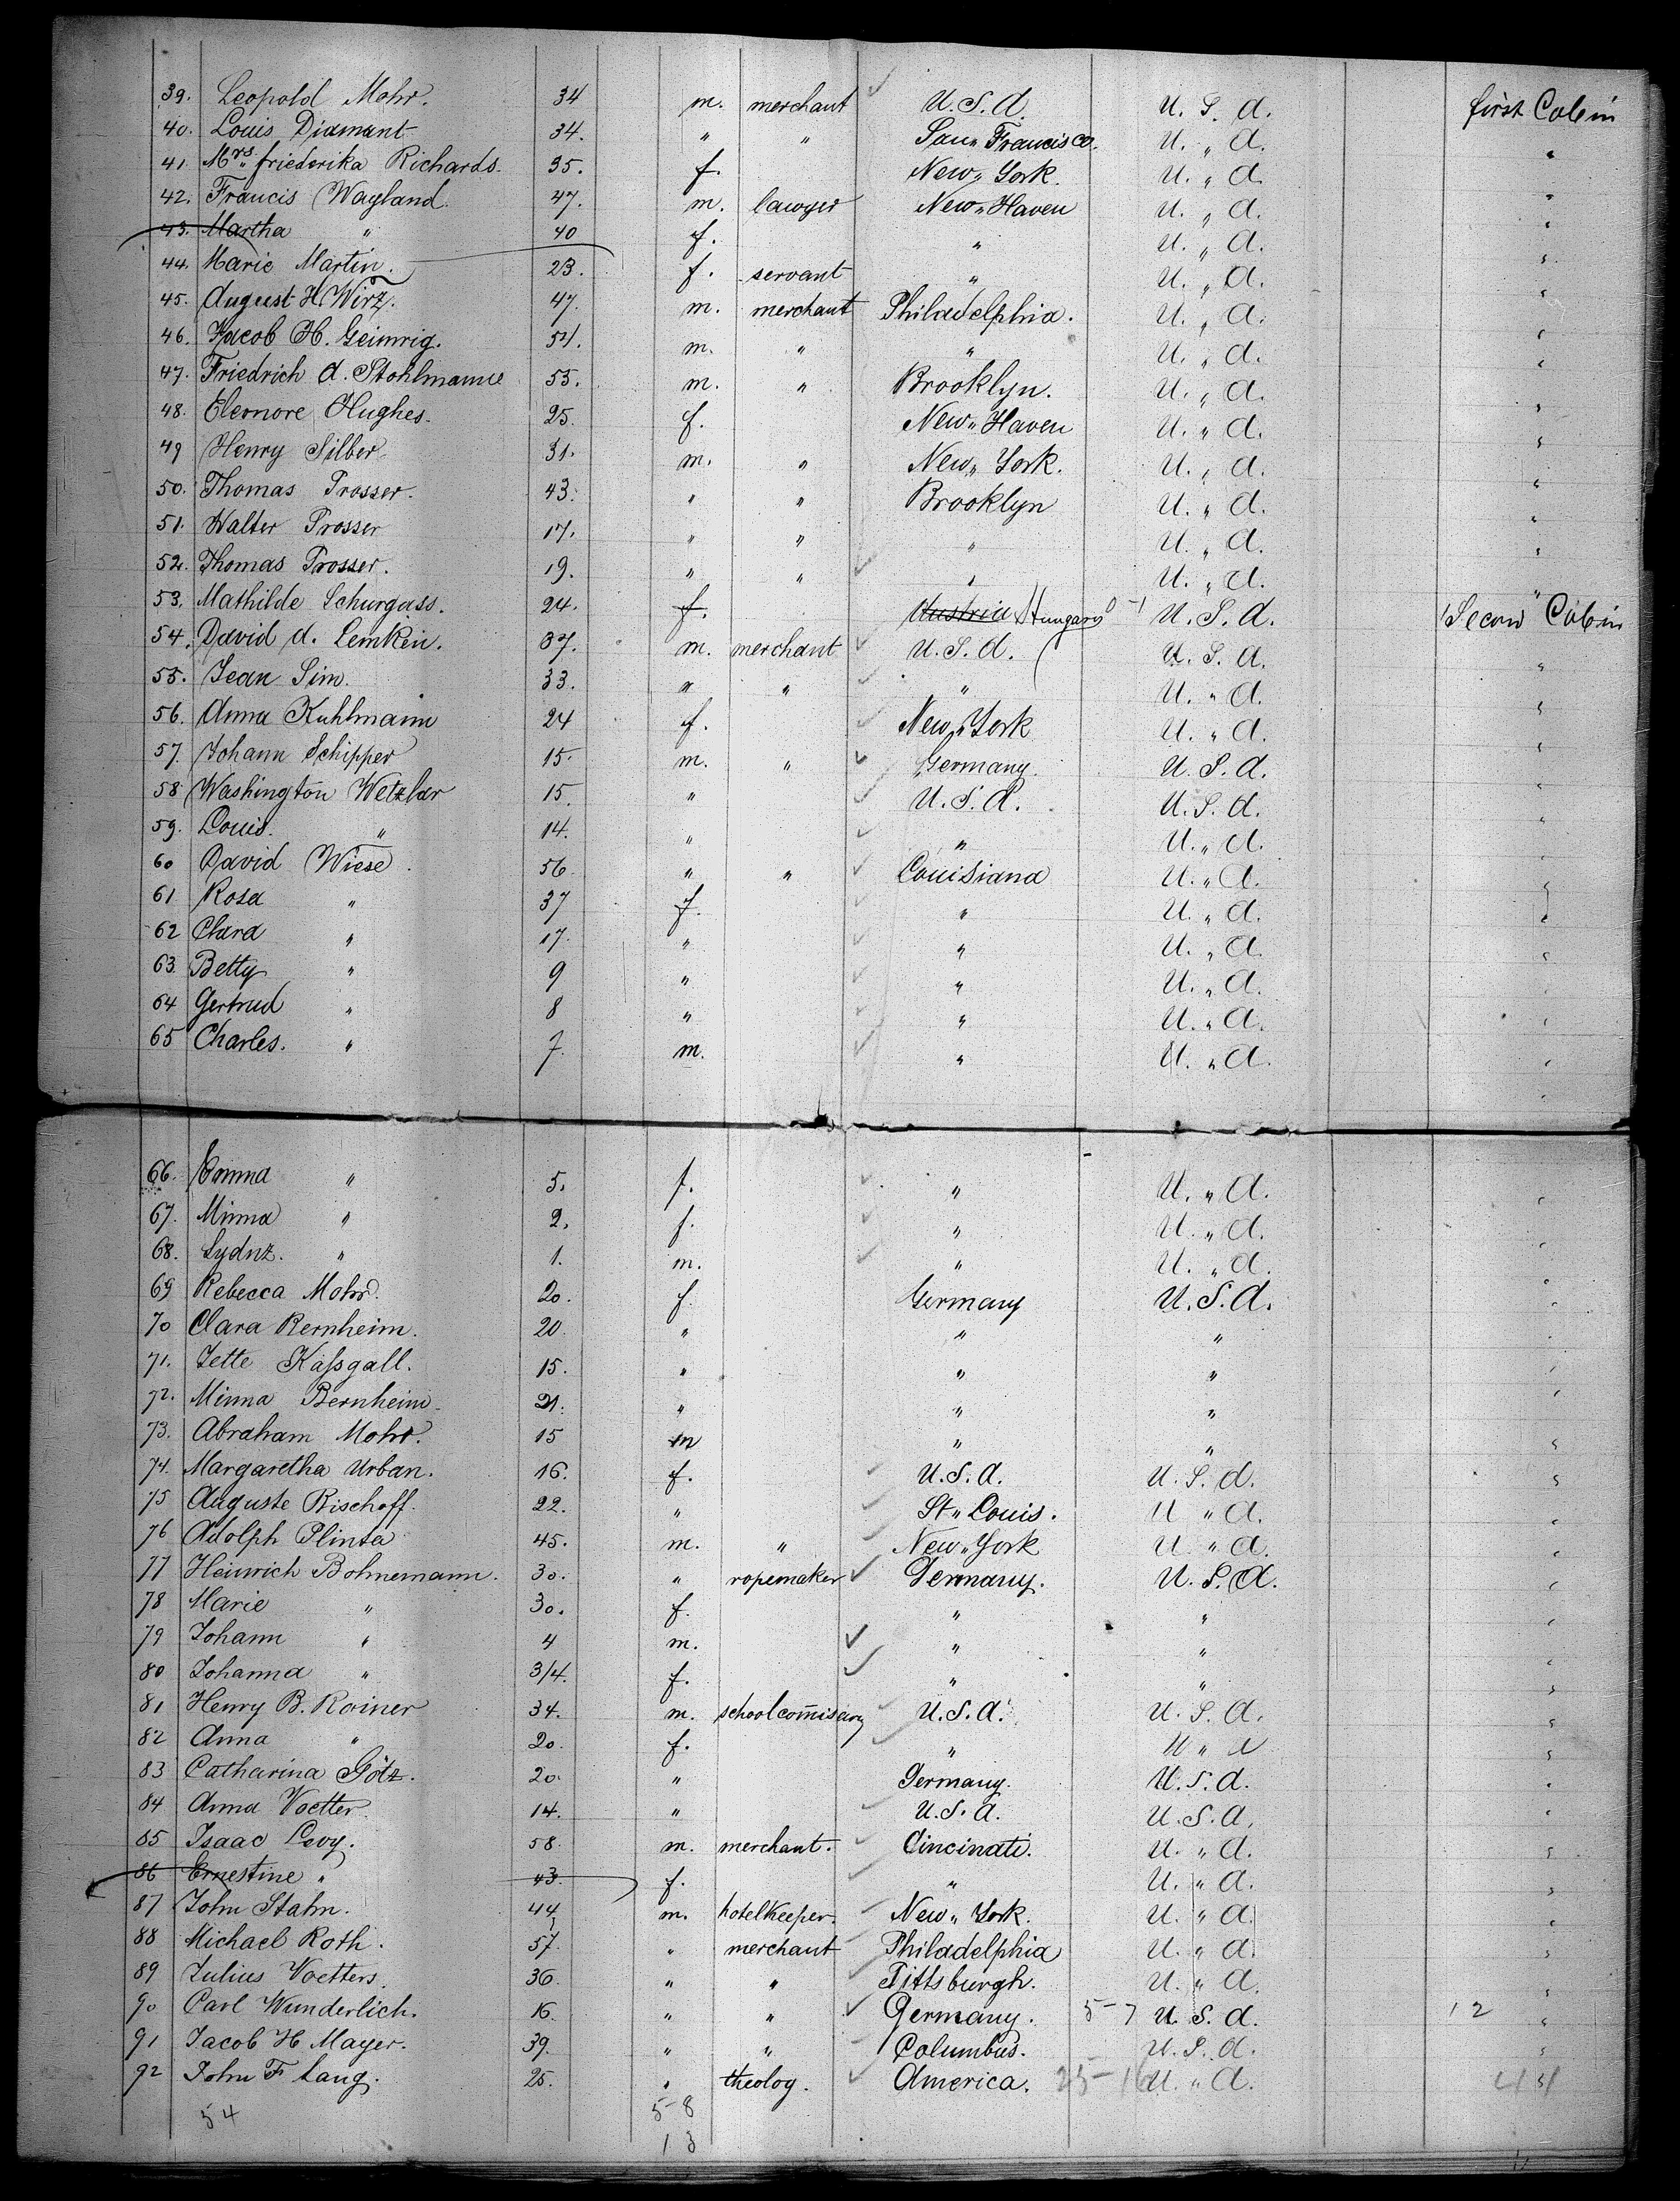 39. Leopold Mohr. 34 m. merchant U.S.A. U. S. A. first Cabin
40. Louis Diamant 34. " " San Francisco. U. " A. "
41. Mrs. friederika Richards. 35. f. New York. U. " A. "
42. Francis Wayland. 47. m. lawyer New Haven U. " A. "
43. Martha " 40 f. " U. " A. "
44. Marie Martin. 23. f. servant " U. " A. "
45. August H Wirz. 47. m. merchant Philadelphia. U. " A. "
46. Jacob H. Geimrig. 54. m. " " U. " A. "
47. Friedrich A. Stohlmann 53. m. " Brooklyn. U. " A. "
48. Eleonore Hughes. 25. f. New Haven U. " A. "
49 Henry Silber. 31. m. " New York. U. " A. "
50. Thomas Prosser. 43. " " Brooklyn U. " A. "
51. Walter Prosser 17. " " " U. " A. "
52. Thomas Prosser. 19. " " " U. " A. "
53. Mathilde Schurgass. 24. f. Austria Hungary U. S. A. Second Cabin
54. David A. Lemkein. 37. m. merchant U. S. A. U. S. A. "
55. Jean Sim. 33. " " " U. " A. "
56. Anna Kuhlmann 24 f. New York U. " A. "
57. Johann Schipper 15. m. " Germany. U. S. A. "
58 Washington Wetzlar 15. " U. S. A. U. S. A. "
59. Louis. " 14. " " U. " A. "
60 David Wiese. 56. " " Louisiana U. " A. "
61 Rosa " 37 f. " U. " A. "
62 Clara " 17. " " U. " A. "
63. Betty " 9 " " U. " A. "
64 Gertrud " 8 " " U. " A. "
65 Charles. " 7. m. " U. " A. "
66. Emma " 5. f. " U. " A. "
67. Minna " 2. f. " U. " A. "
68. " 1. m. " U. " A. "
69 Rebecca Mohr. 20. f. Germany U. S. A. "
70 Clara Bernheim. 20. " " " "
71. Jette Kaſsgall. 15. " " " "
72. Minna Bernheim. 21. " " " "
73. Abraham Mohr. 15 m " " "
74. Margaretha Urban. 16. f. U. S. A. U. S. A. "
75 Auguste Bischoff. 22. " St. Louis. U " A. "
76 Adolph Plinta 45. m. " New York U " A. "
77 Heinrich Bohnemann. 30. " ropemaker Germany. U. S. A. "
78 Marie " 30. f. " " "
79 Johann " 4 m. " " "
80 Johanna " 3/4. f. " " "
81 Henry B. Roiner 34. m. schoolcommisary U. S. A. U. S. A. "
82 Anna " 20. f. " U " A "
83 Catharina Götz. 20. " Germany. U. S. A. "
84 Anna Voetter. 14. " U. S. A. U. S. A. "
85 Isaac Levy. 58. m. merchant. Cincinati. U. " A. "
86 Ernestine " 43. f. " U. " A. "
87 John Stahn. 44 m. hotelkeeper. New York. U. " A. "
88 Michael Roth. 57. " merchant Philadelphia U. " A. "
89 Julius Voetters. 36. " " Pittsburgh. U. " A. "
90 Carl Wunderlich. 16. " " Germany. 5-7 U. S. A. 12 "
91 Jacob H Mayer. 39. " " Columbus. U. S. A. "
92 John F Lang. 25. " theolog. America. 25-16 U. " A. "
54 5-8
13